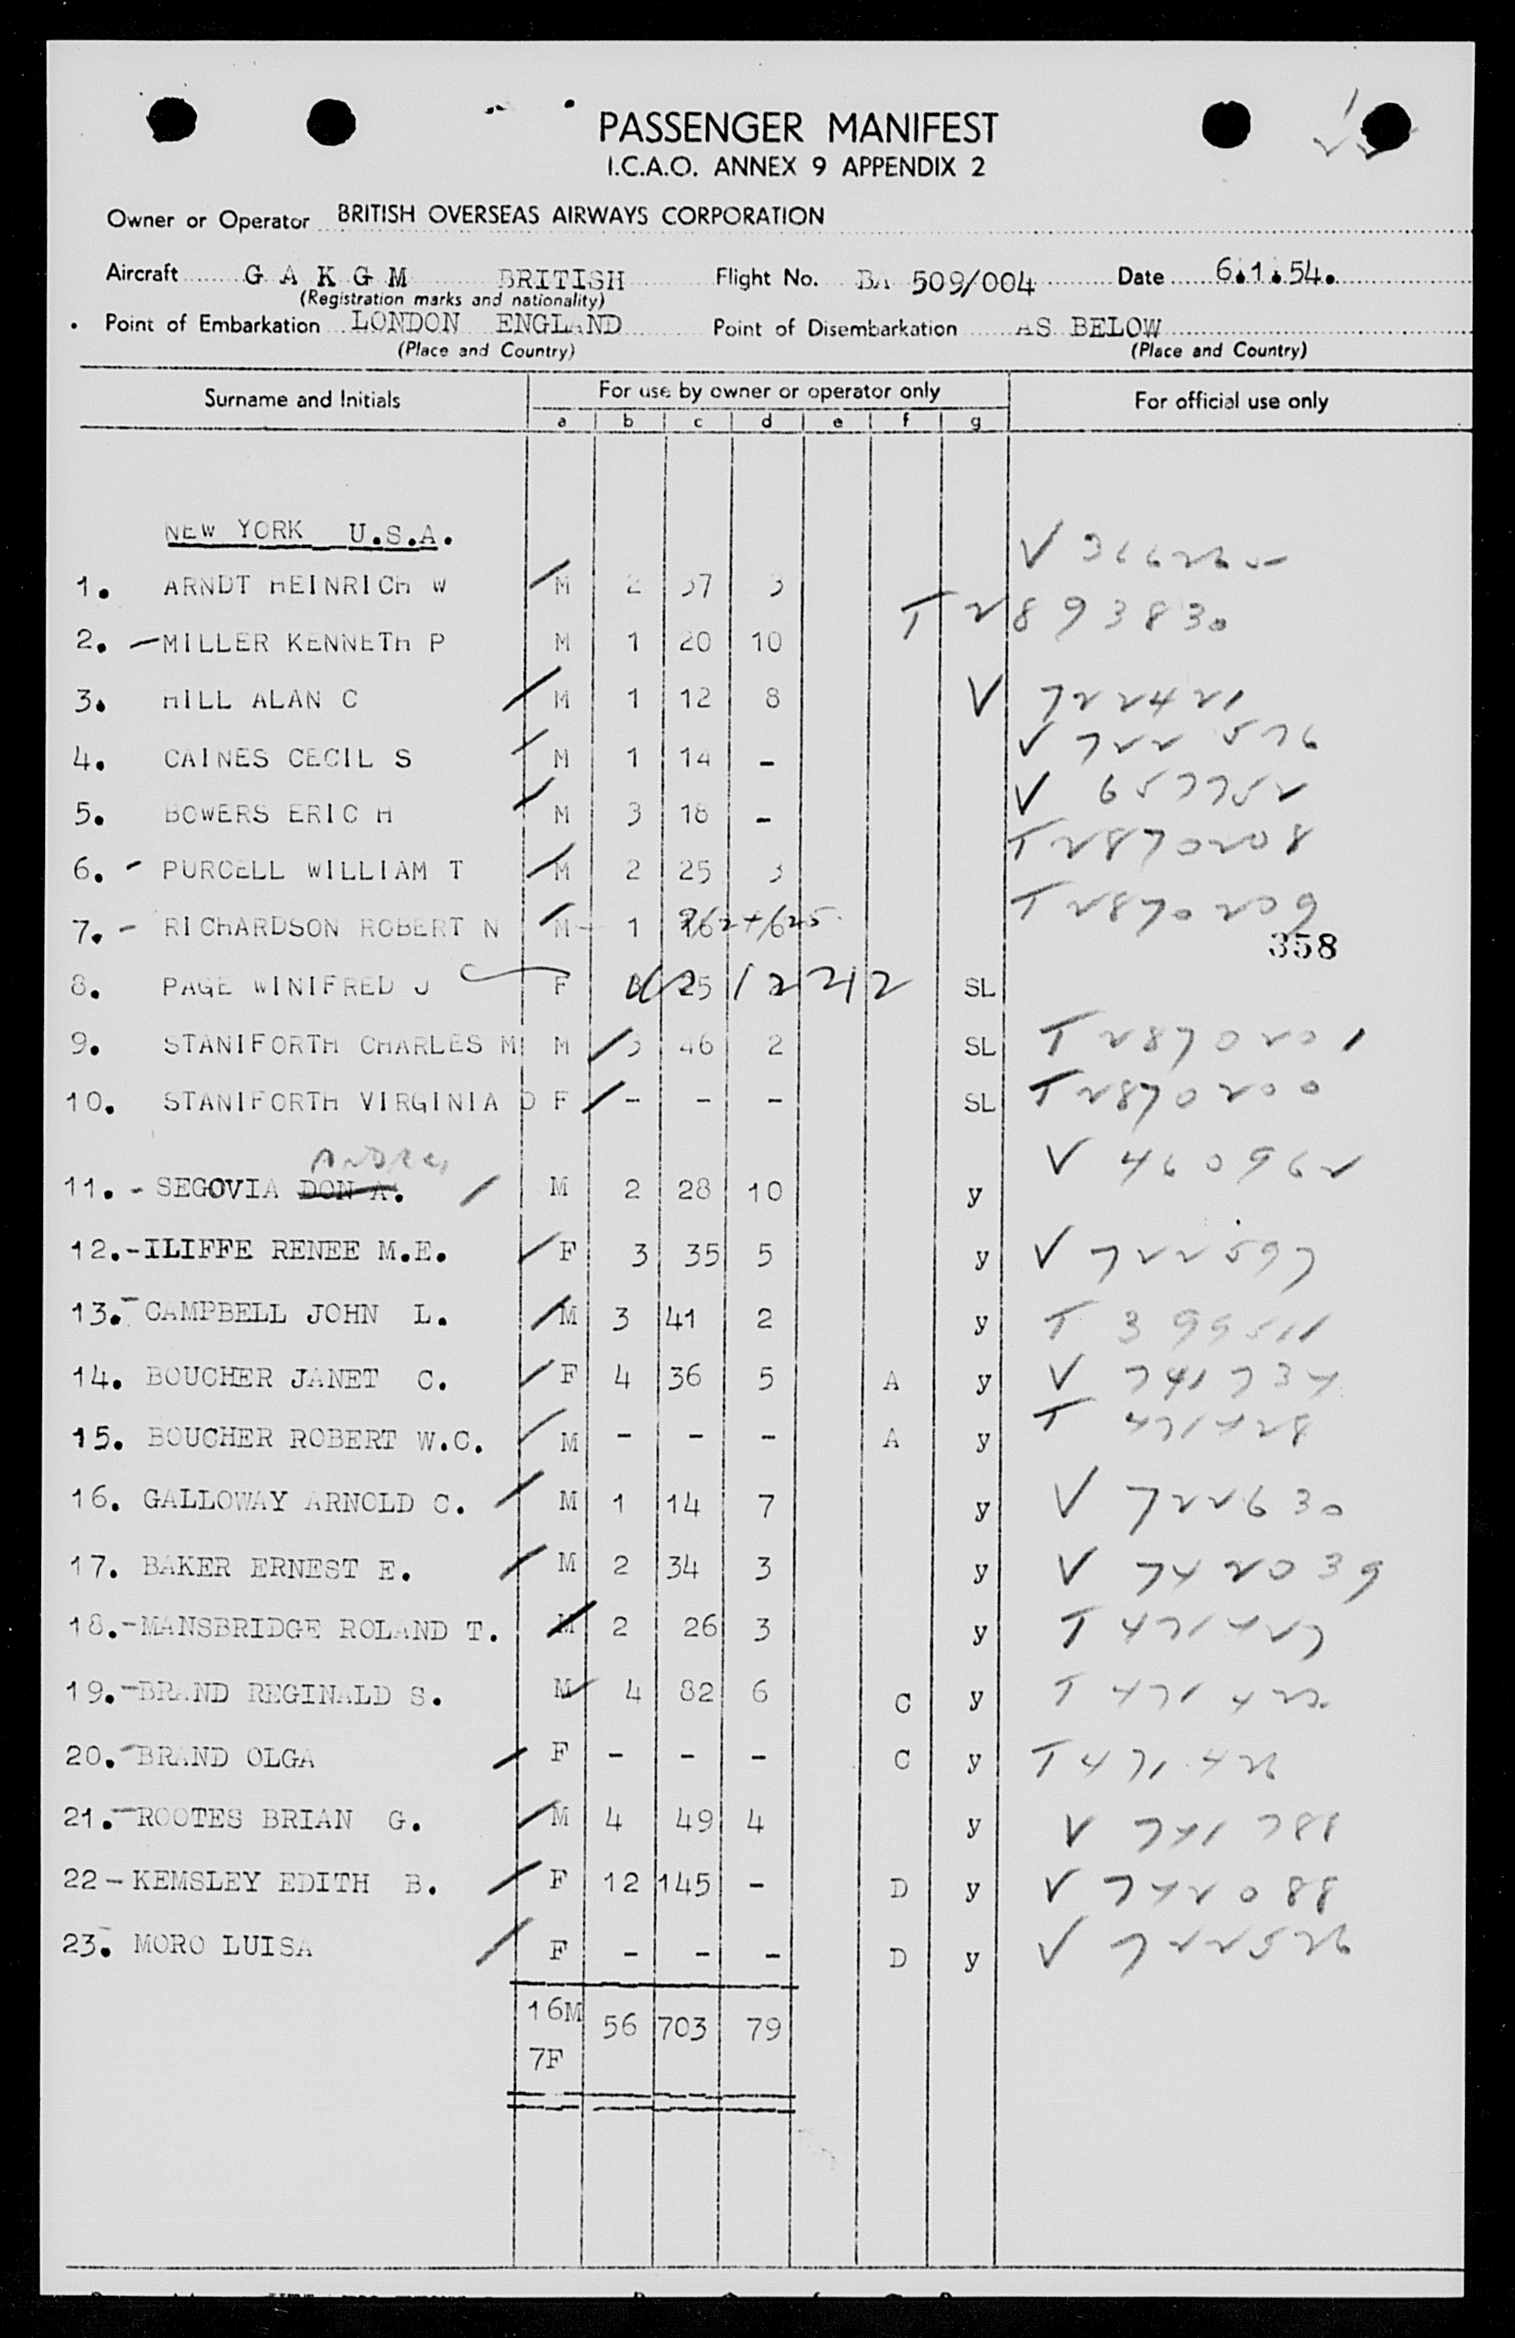 PASSENGER MANIFEST
I.C.A.O. ANNEX 9 APPENDIX 2
Owner or Operator BRITISH OVERSEAS AIRWAYS CORPORATION
Aircraft G A K G M BRITISH Flight No. BA 509/004 Date 6.1.54.
(Registration marks and nationality)
Point of Embarkation LONDON ENGLAND Point of Disembarkation AS BELOW
(Place and Country) (Place and Country)
Surname and Initials For use by owner or operator only For official use only
a b c d e f g
NEW YORK U.S.A.
1. ARNDT HEINRICH W M 2 37 3
2. - MILLER KENNETH P M 1 20 10 T 2893830
3. HILL ALAN C M 1 12 8 V 722421
4. CAINES CECIL S M 1 14 - V 722 576
5. BOWERS ERIC H M 3 18 - V 657752
6. - PURCELL WILLIAM T M 2 25 3 T 2870208
7. - RICHARDSON ROBERT N M 1 T 2870209
358
8. PAGE WINIFRED J F 25 SL
9. STANIFORTH CHARLES M M 3 46 2 SL T 2870201
10. STANIFORTH VIRGINIA D F - - - SL T 2870200
11. - SEGOVIA DON A. M 2 28 10 y V 460962
12. - ILIFFE RENEE M.E. F 3 35 5 y V 722597
13. - CAMPBELL JOHN L. M 3 41 2 y T 399511
14. BOUCHER JANET C. F 4 36 5 A y V 741734
15. BOUCHER ROBERT W.C. M - - - A y T 471428
16. GALLOWAY ARNOLD C. M 1 14 7 y V 722630
17. BAKER ERNEST E. M 2 34 3 y V 742039
18. - MANSBRIDGE ROLAND T. M 2 26 3 y T 471427
19. - BRAND REGINALD S. M 4 82 6 C y T
20. - BRAND OLGA F - - - C y T 471426
21. - ROOTES BRIAN G. M 4 49 4 y V 741788
22 - KEMSLEY EDITH B. F 12 145 - D y V 742088
23. MORO LUISA F - - - D y V 722526
16M 56 703 79
7F